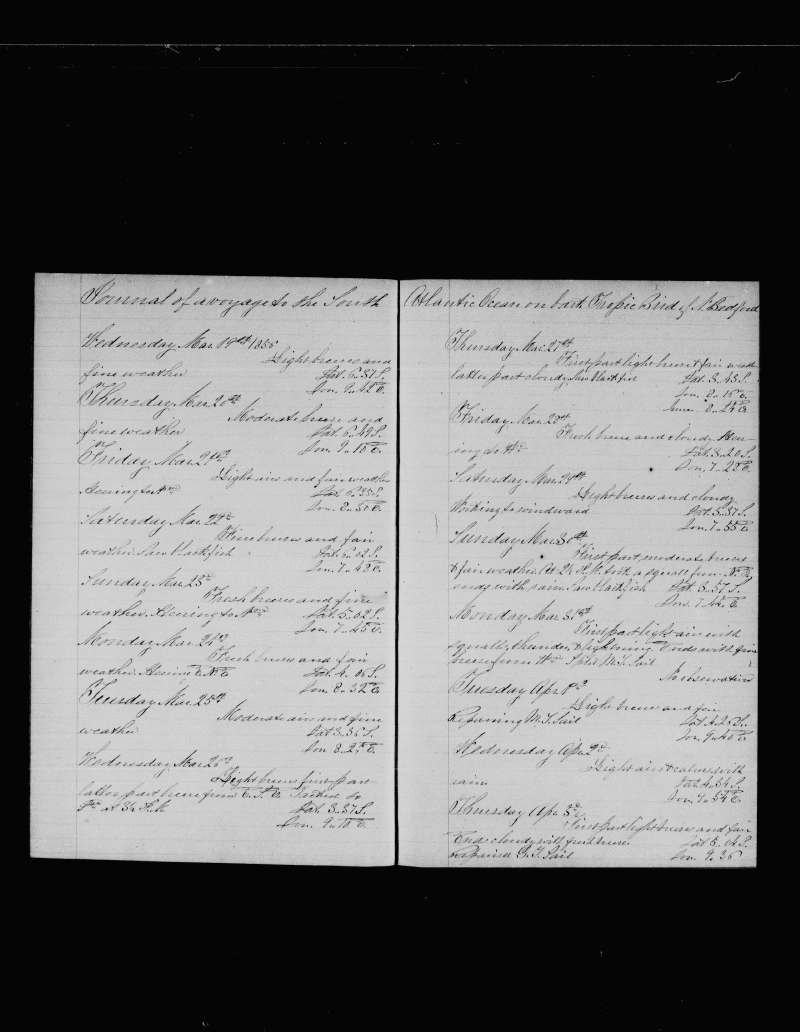 Journal of a voyage to the South
Wednesday Mar. 19th 1856
Light breeses and
fine weather Lat. 6..57 S.
Lon. 9..42 E.
Thursday Mar. 20th
Moderate breese and
fine weather Lat. 6..49 S.
Lon. 9..10 E.
Friday Mar. 21st
Light airs and fair weather
Steering to Nrd Lat. 6..35 S.
Lon. 8..
Saturday Mar. 22nd
Fine breeses and fair
weather. Saw blackfish Lat. 6..12 S.
Lon. 7..48 E.
Sunday Mar. 23rd
Fresh breeses and fine
weather. Steering to Nrd Lat. 5..02 S.
Lon. 7..45 E.
Monday Mar. 24th
Fresh breeses and fair
weather. Steering E.N.E. Lat. 4..
Lon. 8..32 E.
Tuesday Mar. 25th
Moderate air and fine
weather Lat. 3..36 S.
Lon. 8..
Wednesday Mar. 26th
Light breese first part
latter part breese from E.S.E. Tacked to
at 3½ P.M. Lat. 3..37 S.
Lon. 9..10 E.
Atlantic Ocean on bark Tropic Bird of N. Bedford
Thursday Mar. 27th
First part light breese & fair weather
latter part cloudy. Saw blackfish Lat. 3..43 S.
Lon. 8..16 E.
8..24 E.
Friday Mar. 28th
Fresh breese and cloudy. Steer
ing to Wrd Lat. 3..20 S.
Lon. 7..28 E.
Saturday Mar. 29th
Light breeses and cloudy
Working to windward Lat. 3..57 S.
Lon. 7..55 E.
Sunday Mar. 30th
First part, moderate breeses
& fair weather. At 2½ P.M. took a squall from N.E.
ends with rain. Saw blackfish Lat. 3..57 S.
Lon. 7..42 E.
Monday Mar. 31st
First part light air with
squally, thunder, & lightning. Ends with fine
breese from Wrd. Split M.T. Sail
No observation
Tuesday Apr. 1st
Light breese and fair
Repairing M.T. Sail Lat. 4..
Lon. 9..40 E.
Wednesday Apr. 2nd
Light airs & calms with
rain Lat. 4..34 S.
Lon. 9..54 E.
Thursday Apr. 3rd
First part light breese and fair
Ends cloudy with fresh breese. Lat. 5..04 S.
Repaired G.T. Sail Lon. 9..36